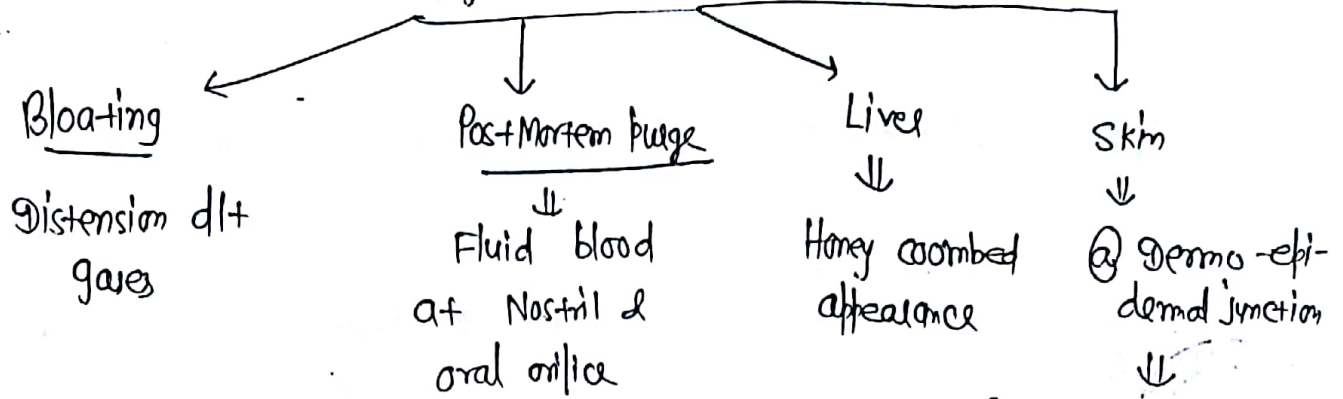 Bloating
Distension d/t
gases
PostMortem purge
Fluid blood
at Nostril &
oral orifice
Liver
Honey coombed
appearance
Skin
@ Dermo-epi-
dermal junction